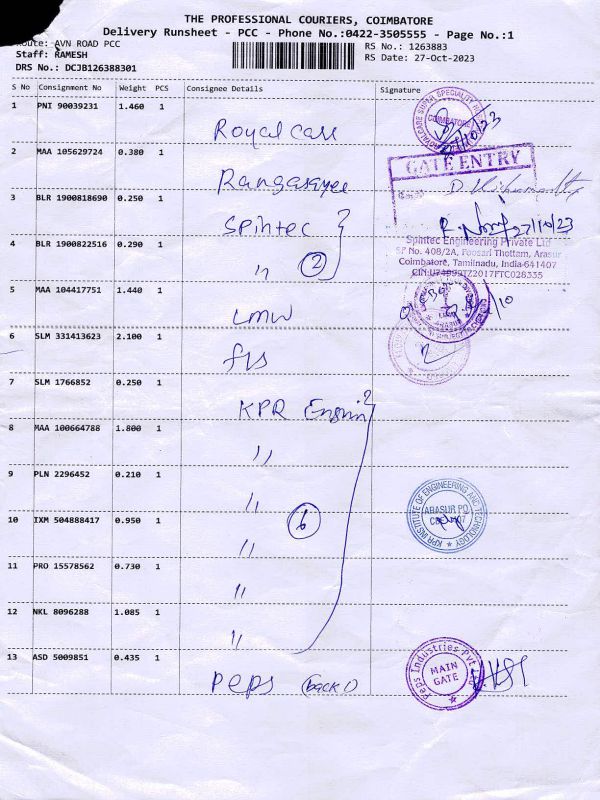 THE PROFESSIONAL COURIERS, COIMBATORE
Delivery Runsheet - PCC - Phone No.:0422-3505555 - Page No.:1
Route: AVN ROAD PCC
RS No.: 1263883
Staff: RAMESH
RS Date: 27-Oct-2023
DRS No.: DCJB126388301
S No Consignment No Weight PCS Consignee Details Signature
1 PNI 90039231 1.460 1 Royal Care
COIMBATORE
27/10/23
2 MAA 105629724 0.380 1 Rangasayee
GATE ENTRY
3 BLR 1900818690 0.250 1 Spintec
27/10/23
4 BLR 1900822516 0.290 1 〃 2
Spintec Engineering Private Ltd
SF No. 408/2A, Poosari Thottam, Arasur
Coimbatore, Tamilnadu, India-641407
CIN:U74999TZ2017FTC028335
5 MAA 104417751 1.440 1 LMW
6 SLM 331413623 2.100 1 fls
7 SLM 1766852 0.250 1 KPR Engin
8 MAA 100664788 1.800 1 〃
9 PLN 2296452 0.210 1 〃
10 IXM 504888417 0.950 1 〃 6
KPR INSTITUTE OF ENGINEERING AND TECHNOLOGY
ARASUR PO
11 PRO 15578562 0.730 1 〃
12 NKL 8096288 1.085 1 〃
13 ASD 5009851 0.435 1 Peps (back)
Peps Industries Pvt Ltd
MAIN
GATE